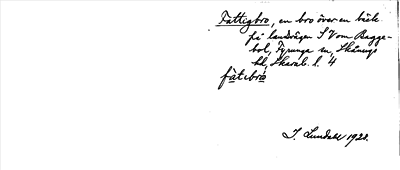 Fattigbro, en bro över en bäck
på landsvägen S Vom Bagge-
bol, Fyrunga sn, Skånings
hd, Skarab. l. 4
fàt⸱ibrò
I. Lundahl 1928.